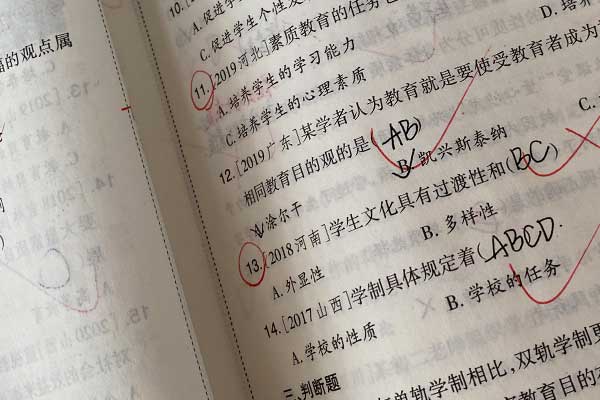 的观点属
10.
A.促进学
C.促进学生个性发
11.[2019河北]素质教育的任务包
D.培养
A.培养学生的学习能力
C.培养学生的心理素质
12.[2019广东]某学者认为教育就是要使受教育者成为
相同教育目的观的是(AB)
A.涂尔干
B.凯兴斯泰纳
C.
13.[2018河南]学生文化具有过渡性和(BC)
A.外显性
B.多样性
14.[2017山西]学制具体规定着(ABCD.
A.学校的性质
B.学校的任务
三、判断题
单轨学制相比,双轨学制更
教育目的